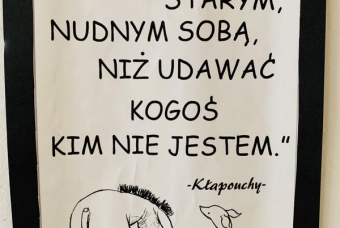 STARYM,
NUDNYM SOBĄ,
NIŻ UDAWAĆ
KOGOŚ
KIM NIE JESTEM."
-Kłapouchy-